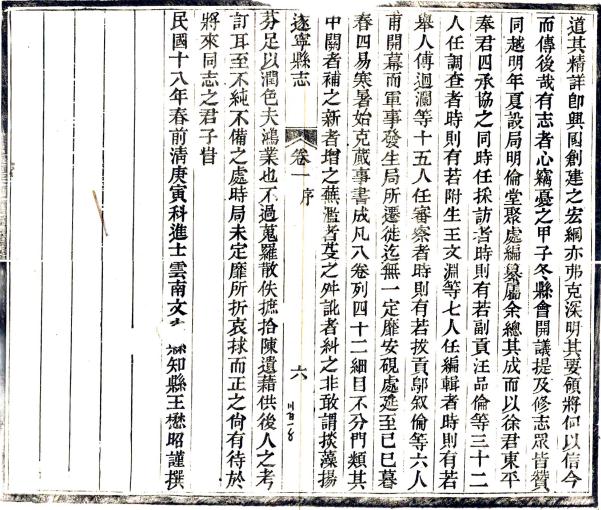 道其精詳卽興國創建之宏綱亦弗克深明其要領將何以信今
而傳後哉有志者心竊憂之甲子冬縣會開議提及修志眾皆贊
同越明年夏設局明倫堂聚處編纂屬余總其成而以徐君東平
奉君四承協之同時任採訪者時則有若副貢汪品倫等三十二
人任調查者時則有若附生王文淵等七人任編輯者時則有若
舉人傅迴瀾等十五人任審察者時則有若拔貢鄔叙倫等六人
甫開幕而軍事發生局所遷徙迄無一定靡安硯處延至己巳暮
春四易寒暑始克蕆事書成凡八卷列四十二細目不分門類其
中闕者補之新者增之蕪濫者芟之舛訛者糾之非敢謂掞藻揚
遂寧縣志
卷一序
六
芬足以潤色夫鴻業也不過蒐羅散佚摭拾陳遺藉供後人之考
訂耳至不純不備之處時局未定靡所折衷捄而正之尙有待於
將來同志之君子旹
民國十八年春前淸庚寅科進士雲南文 知縣王懋昭謹撰